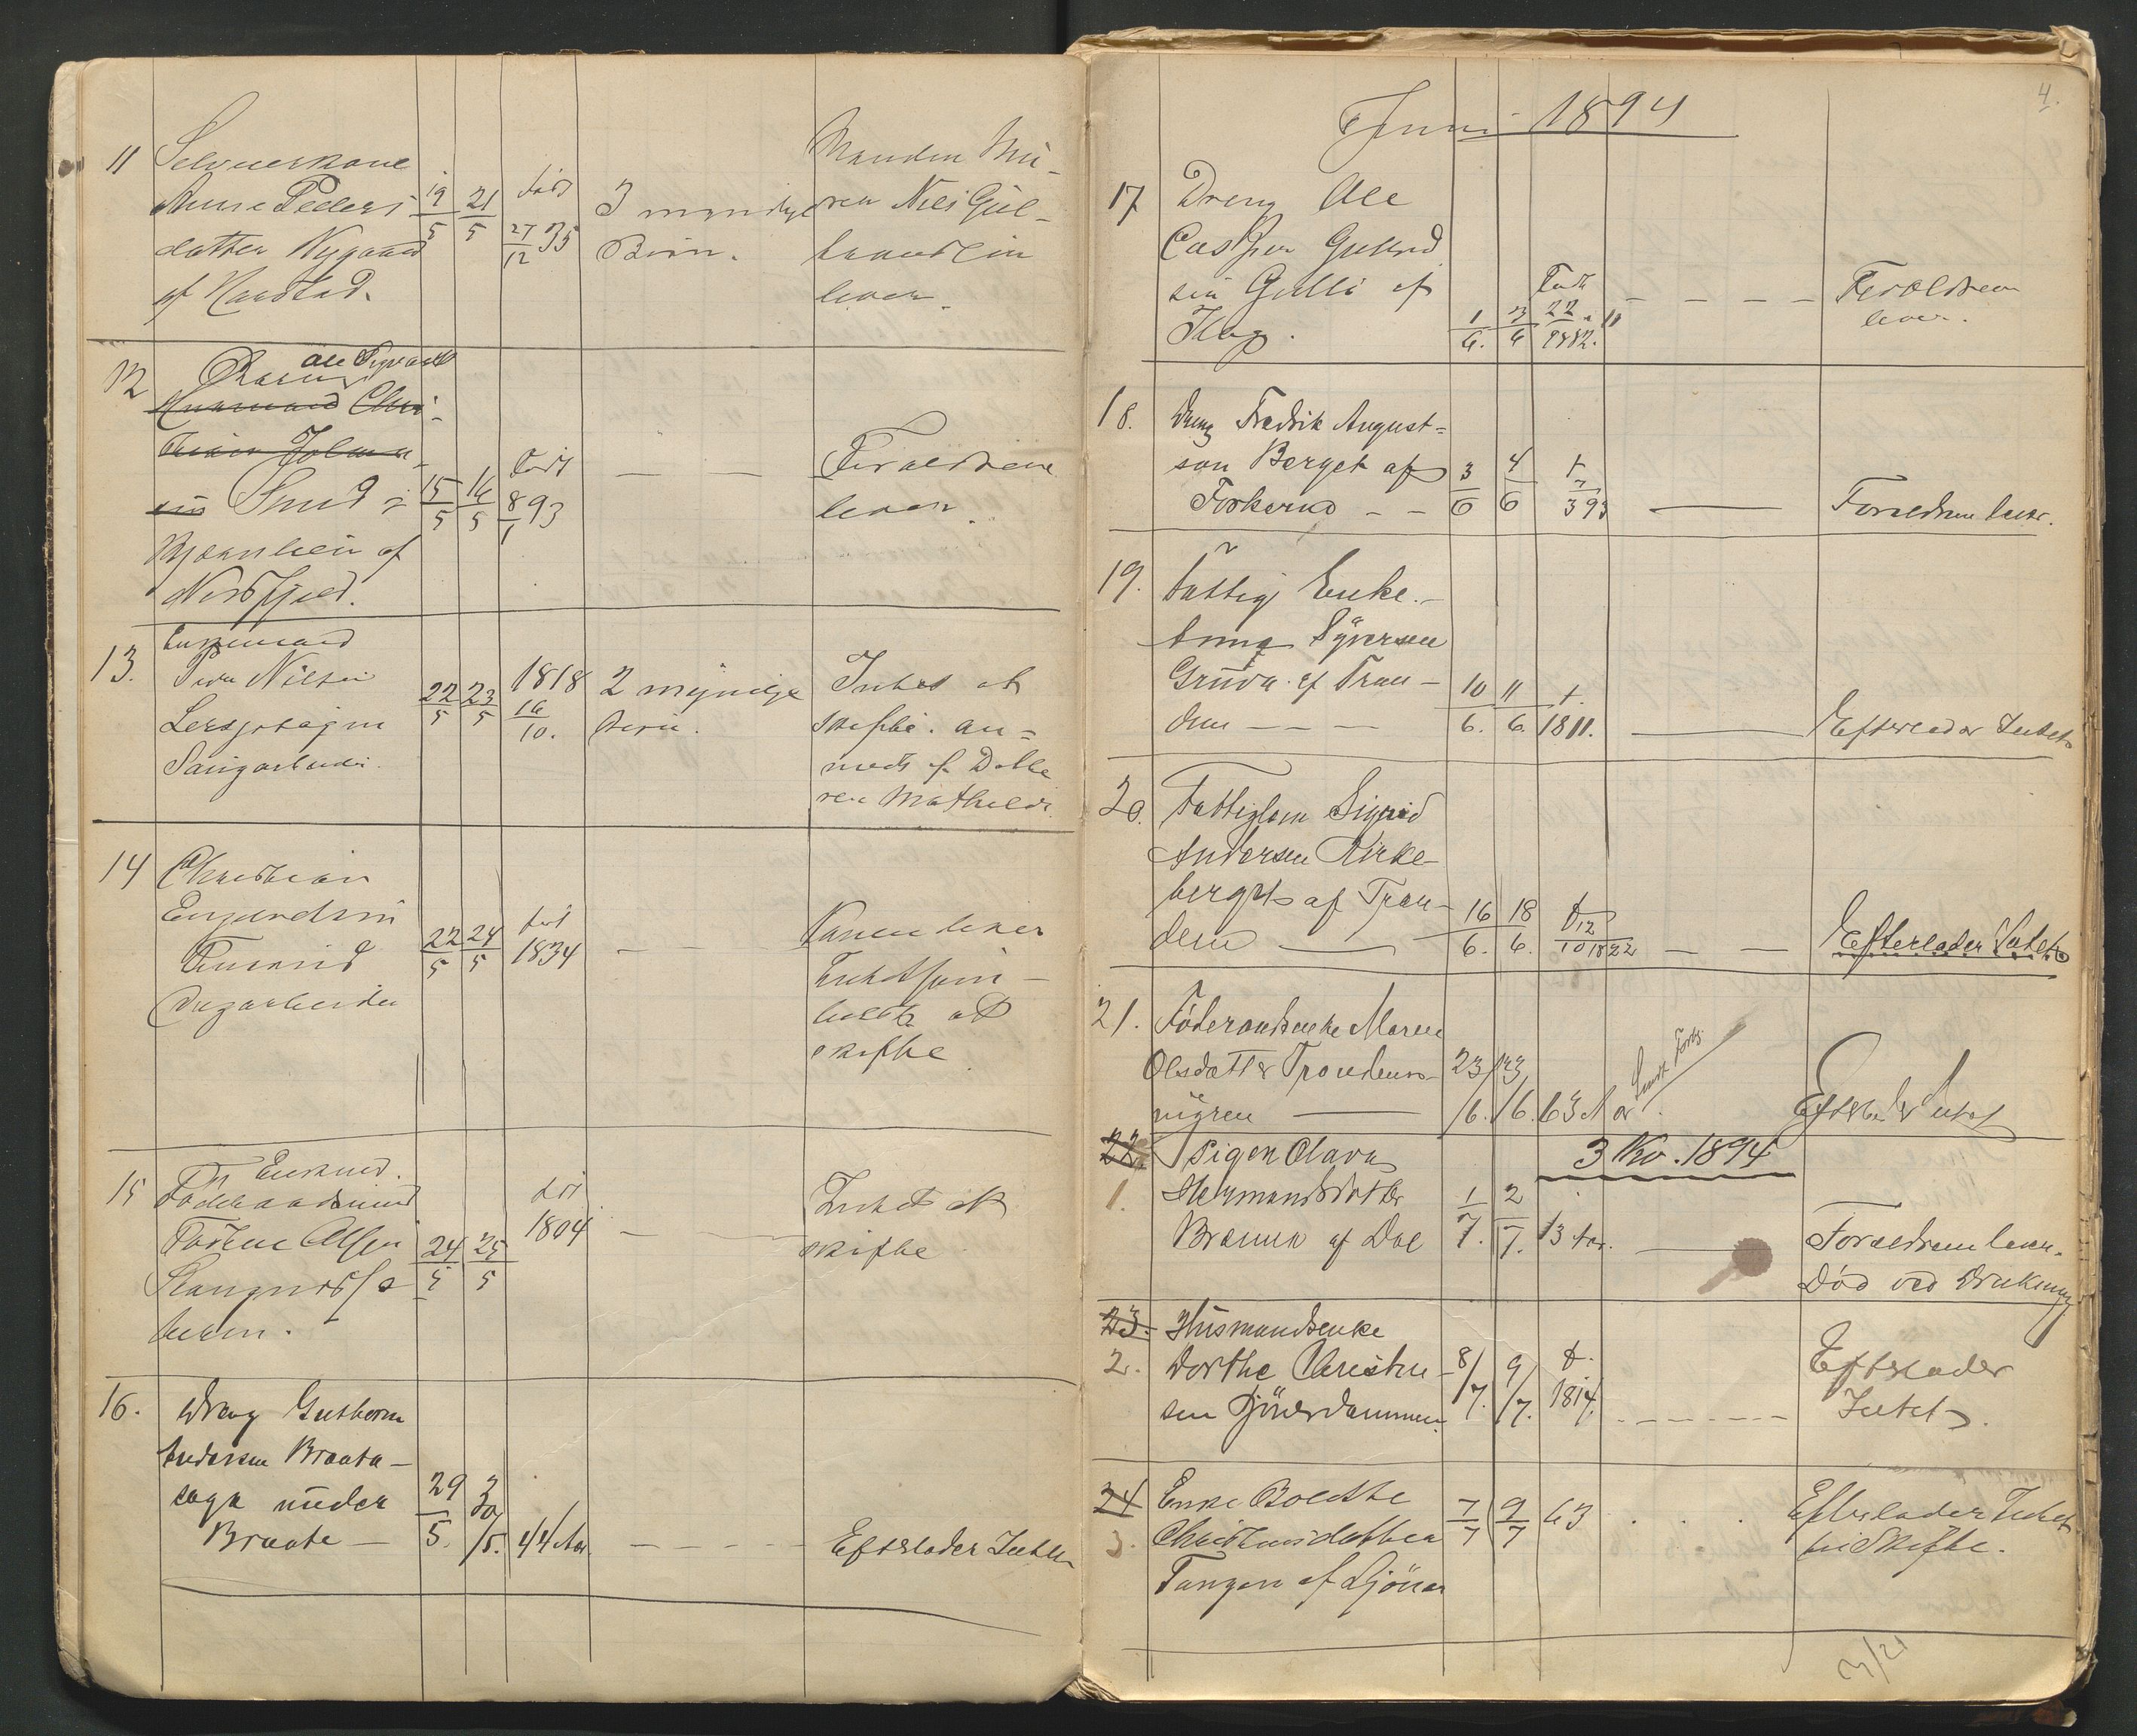 11 Selveierkone
Anne Peders
datter Nygaard
af Haarstad.
19/5 21/5 født 27/12 35
3 myndige
Børn.
Manden Mu-
ren Nils Gul-
brandsen
lever.
12 Ole Sigvart
Rasmus
Sund i
af
Nordfjeld.
15/5 16/5 født 8/1 93
— —
Forældrene
lever.
13. Enkemand
Peder Nilsen
22/5 23/5 1818 16/10.
2 myndige
Børn.
Intet at
skifte. an-
meldt af Datte
ren Mathilde
14 Christian
Engbretsen
Dagarbeider
22/5 24/5 født 1834
— —
Konen lever
at
skifte
15 Enkemd.
Føderaadsmand
Olsen
24/5 25/5 født 1804
—
Intet at
skifte
16. Dreng Guthorm
Andersen Braata-
saga under
Braate —
29/5. 30/5. 44 Aar.
— — — —
Efterlader Intet
4.
Juni 1894
17 Dreng Ole
Casper Gulbrand
sen Gulli af
Haug.
1/6. 3/6 Født 22/11 1882.
— — — —
Forældrene
lever.
18. Dreng Fredrik August=
son Berget af
Forkerud — —
3/6 4/6 f 7/3 93
—
Forældrene lever.
19. Fattig Enke.
Anna Syversen
Gruva af Tran-
dem — — —
10/6. 11/6. f. 1811.
—
Efterlader Intet
20. Fattiglem Sigrid
Andersen Kirke-
berget af Tran-
dem —
16/6. 18/6. f 12/10 1822
— —
Efterlader Intet
21. Föderaadsenke Maren
Olsdatter Trondens-
nigren —
23/6. 23/6. 63 Aar
Efterlader Intet
3 Kv. 1894
22. Pigen Clara
1. Hermansdatter
Brænna af Dal
1/7. 2/7. 13 Aar.
—
Forældrene lever.
Död ved Drukning
23. Husmandsenke
2. Dorthe Christen-
sen Djönesdammen.
8/7. 9/7. f. 1814.
Efterlader
Intet.
24 Enke Bolethe
3. Christensdatter
Tangen af Djönes
7/7 9/7 63
. . .
Efterlader Intet
til Skifte.